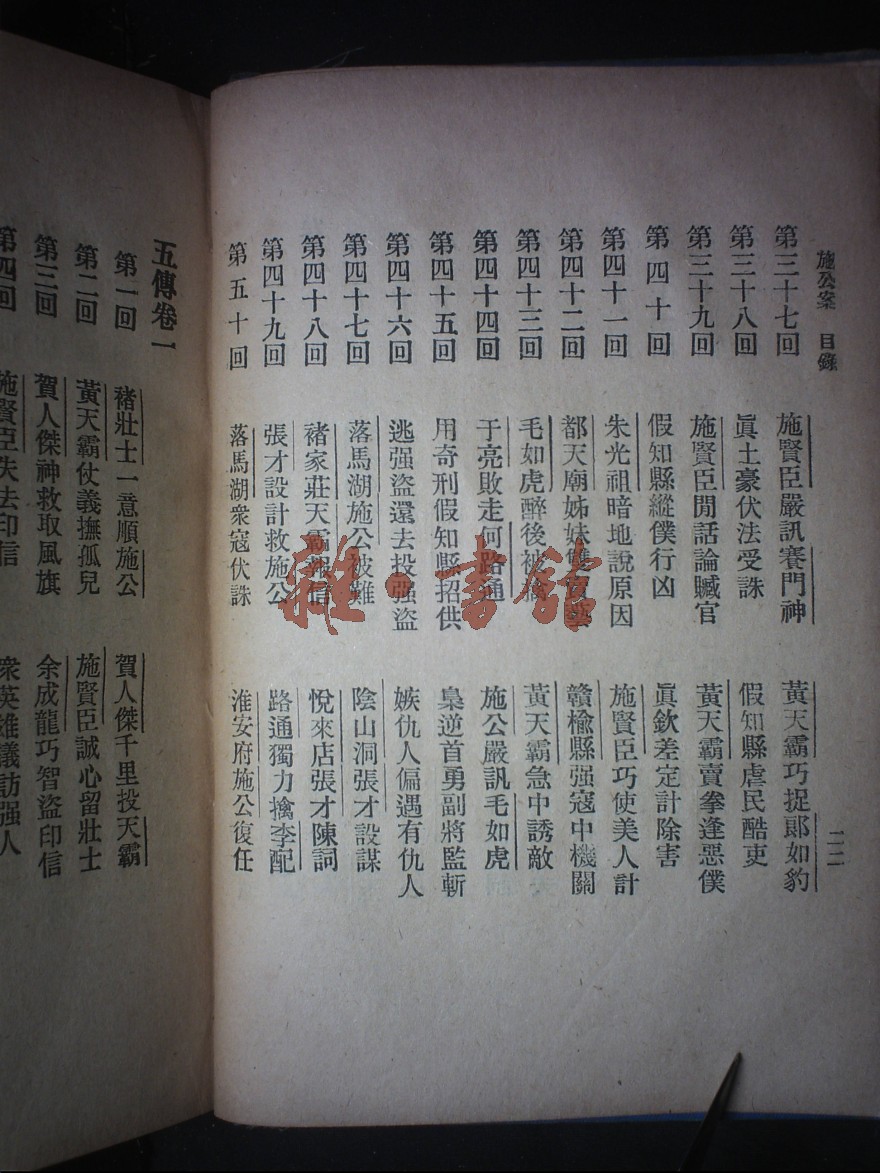 施公案 目錄
第三十七回 施賢臣嚴訊賽門神 黃天霸巧捉郎如豹
第三十八回 眞土豪伏法受誅 假知縣虐民酷吏
第三十九回 施賢臣閒話論贓官 黃天霸賣拳逢惡僕
第四十回 假知縣縱僕行凶 眞欽差定計除害
第四十一回 朱光祖暗地說原因 施賢臣巧使美人計
第四十二回 都天廟姊妹雙賣藝 贛榆縣强寇中機關
第四十三回 毛如虎醉後被擒 黃天霸急中誘敵
第四十四回 于亮敗走何路通 施公嚴訊毛如虎
第四十五回 用奇刑假知縣招供 梟逆首勇副將監斬
第四十六回 逃强盜還去投强盜 嫉仇人偏遇有仇人
第四十七回 落馬湖施公被難 陰山洞張才設謀
第四十八回 褚家莊天霸報信 悅來店張才陳詞
第四十九回 張才設計救施公 路通獨力擒李配
第五十回 落馬湖衆寇伏誅 淮安府施公復任
二二
五傳卷一
第一回 褚壯士一意順施公 賀人傑千里投天霸
第二回 黃天霸仗義撫孤兒 施賢臣誠心留壯士
第三回 賀人傑神救取風旗 余成龍巧智盜印信
第四回 施賢臣失去印信 衆英雄議訪强人
雜·書館